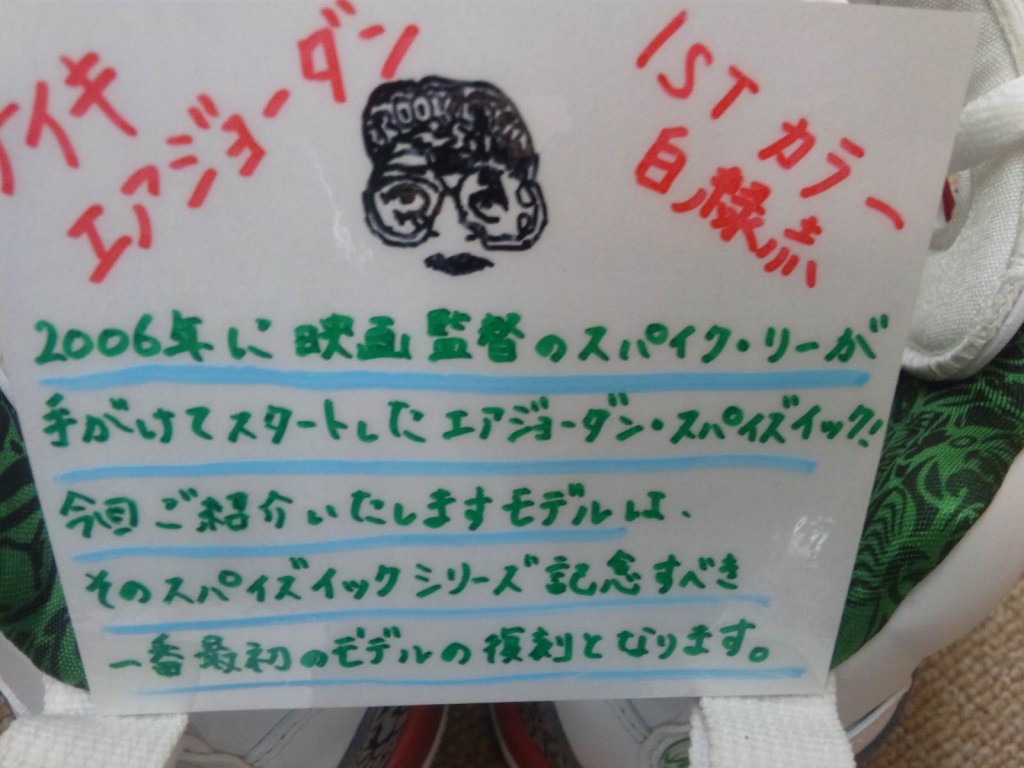 ナイキ
エアジョーダン
1ST カラー
白緑点
2006年に映画監督のスパイク・リーが
手がけてスタートしたエアジョーダン・スパイズイック!
今回ご紹介いたしますモデルは、
そのスパイズイックシリーズ記念すべき
一番最初のモデルの復刻となります。